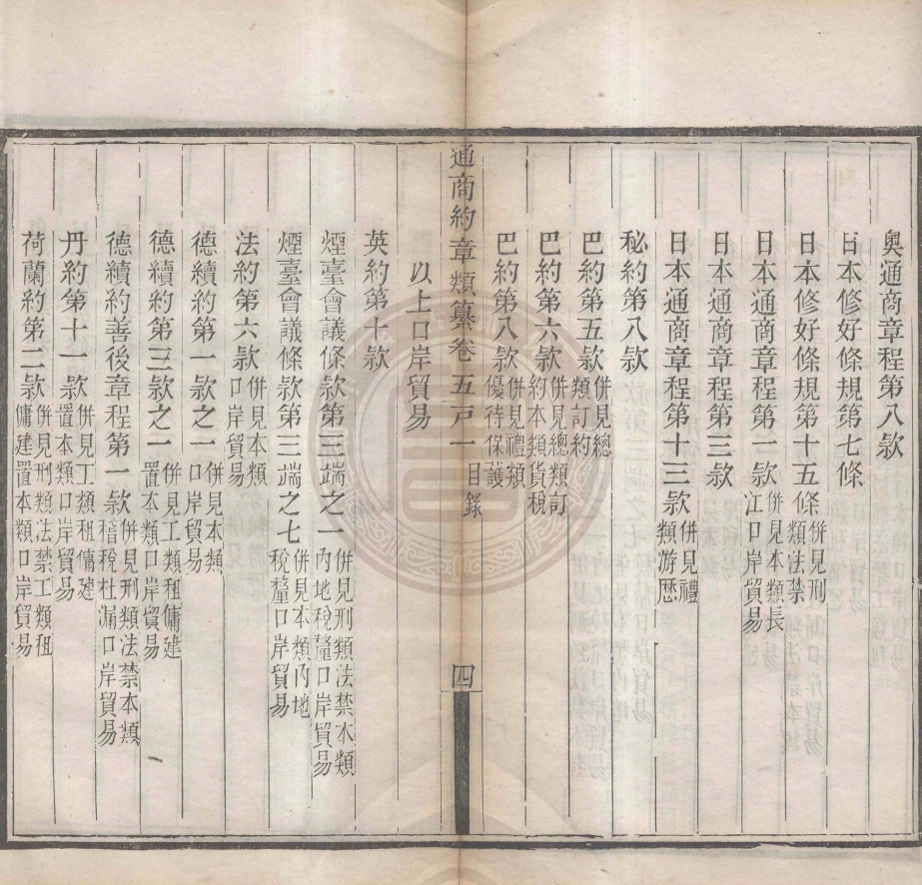 奧通商章程第八款
日本修好條規第七條
日本修好條規第十五條併見刑類法禁
日本通商章程第二款併見本類長江口岸貿易
日本通商章程第三款
日本通商章程第十三款併見禮類游歷
秘約第八款
巴約第五款併見總類訂約
巴約第六款併見總類訂約本類貨稅
巴約第八款併見禮類優待保護
通商約章類纂卷五戸一 目録 四
以上口岸貿易
英約第十款
煙臺會議條款第三端之一併見刑類法禁本類内地稅釐口岸貿易
煙臺會議條款第三端之七併見本類内地稅釐口岸貿易
法約第六款併見本類口岸貿易
德續約第一款之一併見本類口岸貿易
德續約第三款之一併見工類租傭建置本類口岸貿易
德續約善後章程第一款併見刑類法禁本類稽稅杜漏口岸貿易
丹約第十一款併見工類租傭建置本類口岸貿易
荷蘭約第二款併見刑類法禁工類租傭建置本類口岸貿易